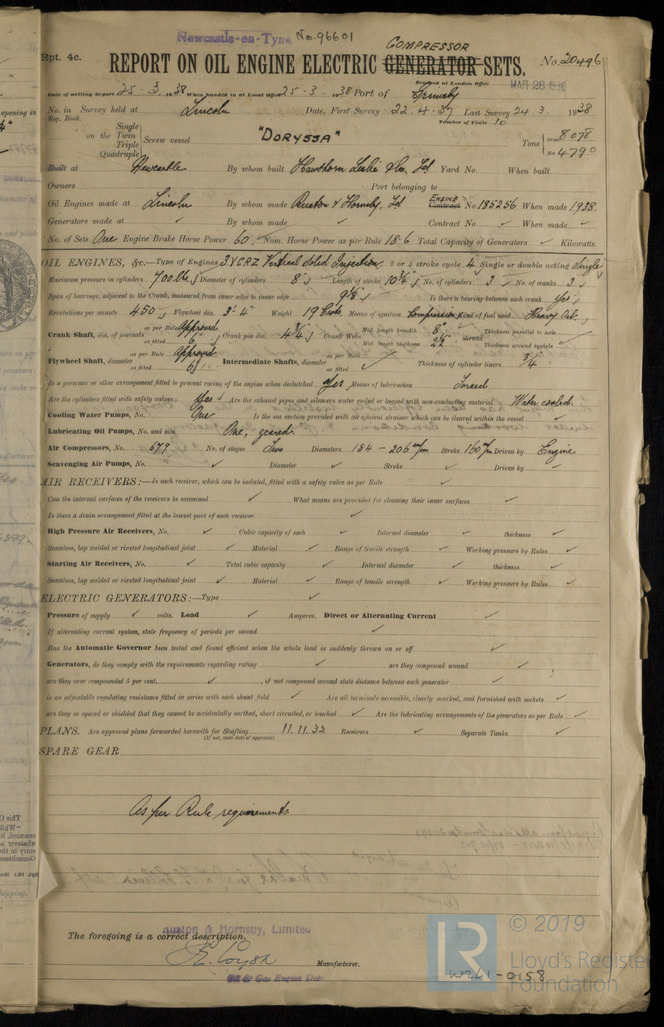 Newcastle-on-Tyne No. 96601
COMPRESSOR
Rpt. 4c. REPORT ON OIL ENGINE ELECTRIC GENERATOR SETS. No. 20496
Received at London Office
Date of writing Report 25-3-1938 When handed in at Local Office 25-3-1938 Port of Grimsby MAR 26 1938
No. in Survey held at Lincoln Date, First Survey 22.4.37 Last Survey 24.3.1938
Reg. Book. Number of Visits 10
Single
on the Twin
Triple
Quadruple
Screw vessel "DORYSSA" Tons Gross 8078
Net 4790
Built at Newcastle By whom built Hawthorn Leslie & Co. Ld Yard No. When built
Owners Port belonging to
Oil Engines made at Lincoln By whom made Ruston & Hornsby, Ld ENGINE Contract No. 185256 When made 1938.
Generators made at ✓ By whom made ✓ Contract No. ✓ When made ✓
No. of Sets One Engine Brake Horse Power 60 Nom. Horse Power as per Rule 18.6 Total Capacity of Generators ✓ Kilowatts.
OIL ENGINES, &c.—Type of Engines 3VCRZ Vertical Solid Injection 2 or 4 stroke cycle 4 Single or double acting Single
Maximum pressure in cylinders 700 lbs Diameter of cylinders 8" Length of stroke 10¾" No. of cylinders 3 No. of cranks 3
Span of bearings, adjacent to the Crank, measured from inner edge to inner edge 9⅞" Is there a bearing between each crank Yes
Revolutions per minute 450 Flywheel dia. 3'. 4" Weight 19 Cwts. Means of ignition Compression Kind of fuel used Heavy Oil
Crank Shaft, dia. of journals as per Rule Approved as fitted 6" Crank pin dia. 4¾" Crank Webs Mid. length breadth 8" Mid. length thickness shrunk Thickness parallel to axis ✓ Thickness around eyehole ✓
Flywheel Shaft, diameter as per Rule Approved as fitted 6" Intermediate Shafts, diameter as per Rule ✓ as fitted ✓ Thickness of cylinder liners ¾"
Is a governor or other arrangement fitted to prevent racing of the engine when declutched Yes Means of lubrication Forced
Are the cylinders fitted with safety valves Yes Are the exhaust pipes and silencers water cooled or lagged with non-conducting material Water cooled
Cooling Water Pumps, No. One Is the sea suction provided with an efficient strainer which can be cleared within the vessel ✓
Lubricating Oil Pumps, No. and size One, geared
Air Compressors, No. 679 No. of stages Two Diameters 184 - 206 m/m Stroke 160 m/m Driven by Engine
Scavenging Air Pumps, No. ✓ Diameter ✓ Stroke ✓ Driven by ✓
AIR RECEIVERS:—Is each receiver, which can be isolated, fitted with a safety valve as per Rule ✓
Can the internal surfaces of the receivers be examined ✓ What means are provided for cleaning their inner surfaces ✓
Is there a drain arrangement fitted at the lowest part of each receiver ✓
High Pressure Air Receivers, No. ✓ Cubic capacity of each ✓ Internal diameter ✓ thickness ✓
Seamless, lap welded or riveted longitudinal joint ✓ Material ✓ Range of tensile strength ✓ Working pressure by Rules ✓
Starting Air Receivers, No. ✓ Total cubic capacity ✓ Internal diameter ✓ thickness ✓
Seamless, lap welded or riveted longitudinal joint ✓ Material ✓ Range of tensile strength ✓ Working pressure by Rules ✓
ELECTRIC GENERATORS:—Type ✓
Pressure of supply ✓ volts. Load ✓ Amperes. Direct or Alternating Current ✓
If alternating current system, state frequency of periods per second ✓
Has the Automatic Governor been tested and found efficient when the whole load is suddenly thrown on or off ✓
Generators, do they comply with the requirements regarding rating ✓ are they compound wound ✓
are they over compounded 5 per cent. ✓ , if not compound wound state distance between each generator ✓
is an adjustable regulating resistance fitted in series with each shunt field ✓ Are all terminals accessible, clearly marked, and furnished with sockets ✓
are they so spaced or shielded that they cannot be accidentally earthed, short circuited, or touched ✓ Are the lubricating arrangements of the generators as per Rule ✓
PLANS. Are approved plans forwarded herewith for Shafting 11.11.32 Receivers ✓ Separate Tanks ✓
(If not, state date of approval)
SPARE GEAR
As per Rule requirements
Ruston & Hornsby, Limited
The foregoing is a correct description,
Manufacturer.
Oil & Gas Engine Dept
© 2019
LR
Lloyd's Register
Foundation
W261-0158